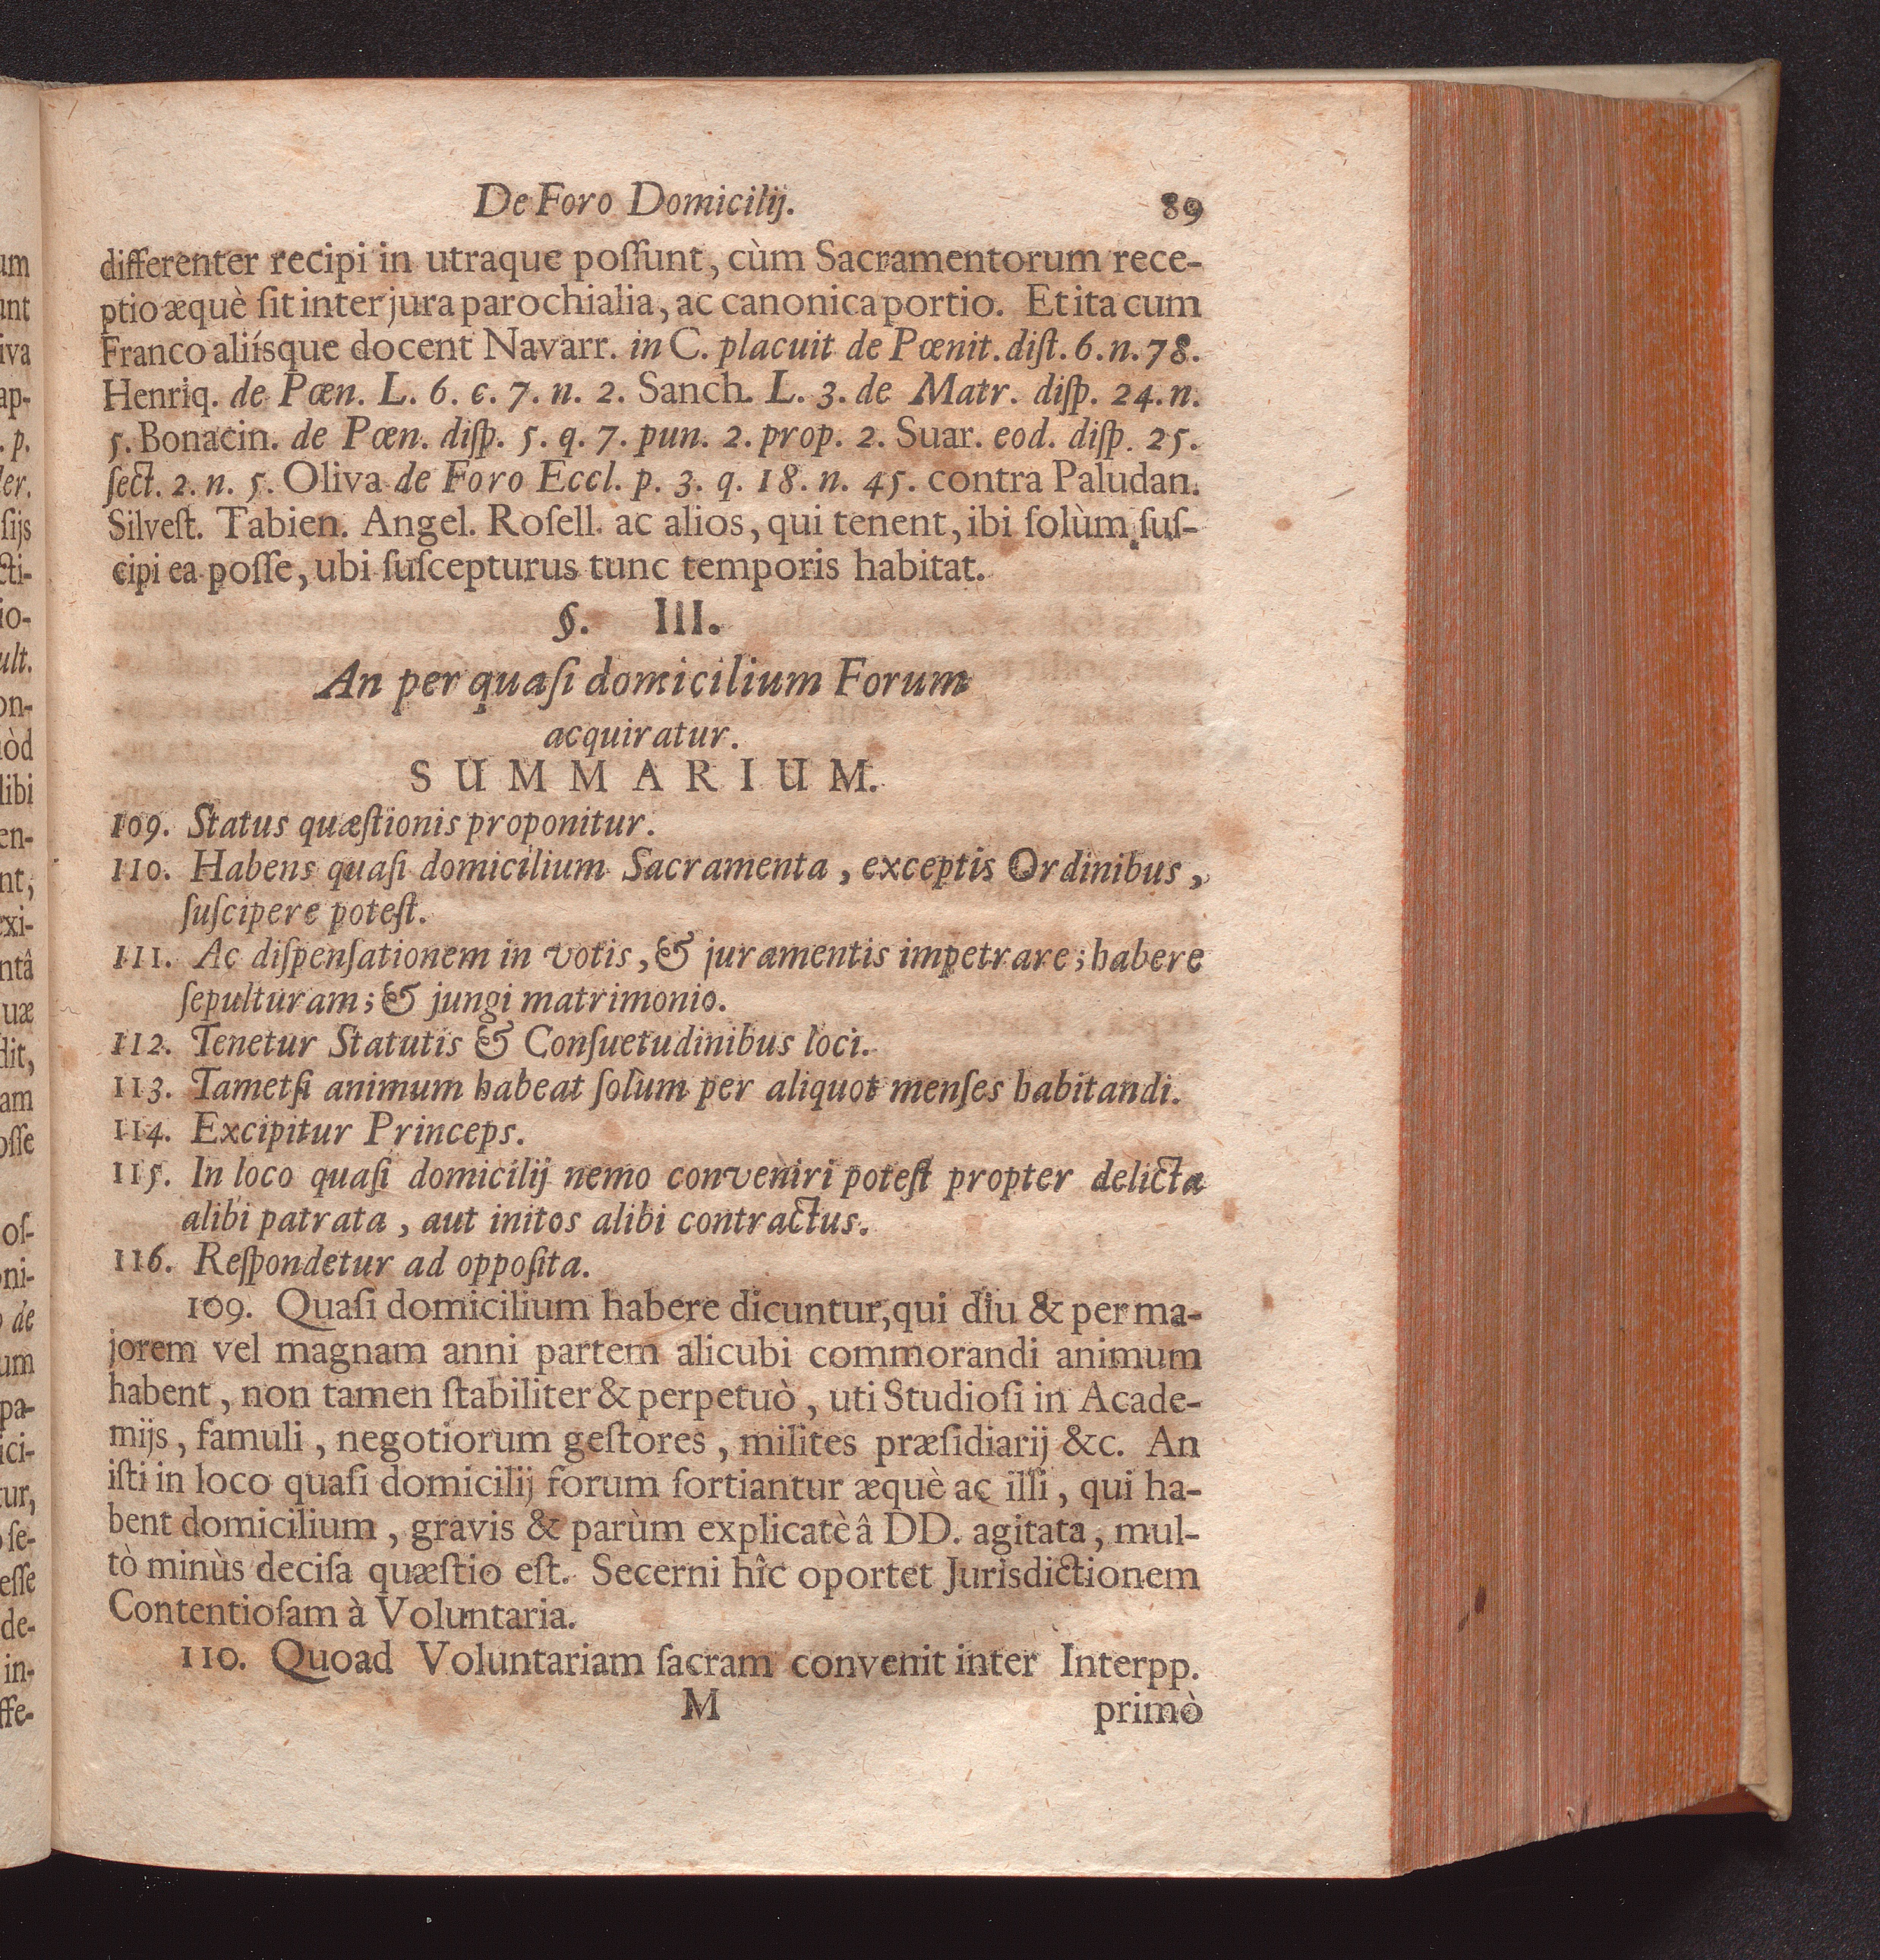 De Foro Domicilij. 89
differenter recipi in utraque poſſunt, cùm Sacramentorum rece-
ptio æquè ſit inter jura parochialia, ac canonica portio. Et ita cum
Franco aliísque docent Navarr. in C. placuit de Pœnit. diſt. 6. n. 78.
Henriq. de Pœn. L. 6. c. 7. n. 2. Sanch. L. 3. de Matr. diſp. 24. n.
5. Bonacin. de Pœn. diſp. 5. q. 7. pun. 2. prop. 2. Suar. eod. diſp. 25.
ſect. 2. n. 5. Oliva de Foro Eccl. p. 3. q. 18. n. 45. contra Paludan.
Silveſt. Tabien. Angel. Roſell. ac alios, qui tenent, ibi ſolùm ſuſ-
cipi ea poſſe, ubi ſuſcepturus tunc temporis habitat.
§. III.
An per quaſi domicilium Forum
acquiratur.
SUMMARIUM.
109. Status quæſtionis proponitur.
110. Habens quaſi domicilium Sacramenta, exceptis Ordinibus,
ſuſcipere poteſt.
111. Ac diſpenſationem in votis, & juramentis impetrare; habere
ſepulturam; & jungi matrimonio.
112. Tenetur Statutis & Conſuetudinibus loci.
113. Tametſi animum habeat ſolùm per aliquot menſes habitandi.
114. Excipitur Princeps.
115. In loco quaſi domicilij nemo conveniri poteſt propter delicta
alibi patrata, aut initos alibi contractus.
116. Reſpondetur ad oppoſita.
109. Quaſi domicilium habere dicuntur, qui diu & per ma-
jorem vel magnam anni partem alicubi commorandi animum
habent, non tamen ſtabiliter & perpetuò, uti Studioſi in Acade-
mijs, famuli, negotiorum geſtores, milites præſidiarij &c. An
iſti in loco quaſi domicilij forum ſortiantur æquè ac illi, qui ha-
bent domicilium, gravis & parùm explicatè â DD. agitata, mul-
tò minùs deciſa quæſtio eſt. Secerni hîc oportet Jurisdictionem
Contentioſam à Voluntaria.
110. Quoad Voluntariam ſacram convenit inter Interpp.
M primò